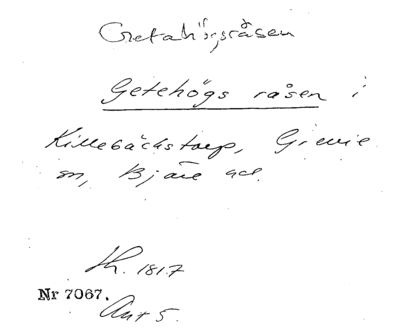 Gretahögsråsen
Getehögs råsen i
Killebäckstorp, Grevie
sn, Bjäre hd.
Lh. 1817
Nr 7067.
Akt 5.